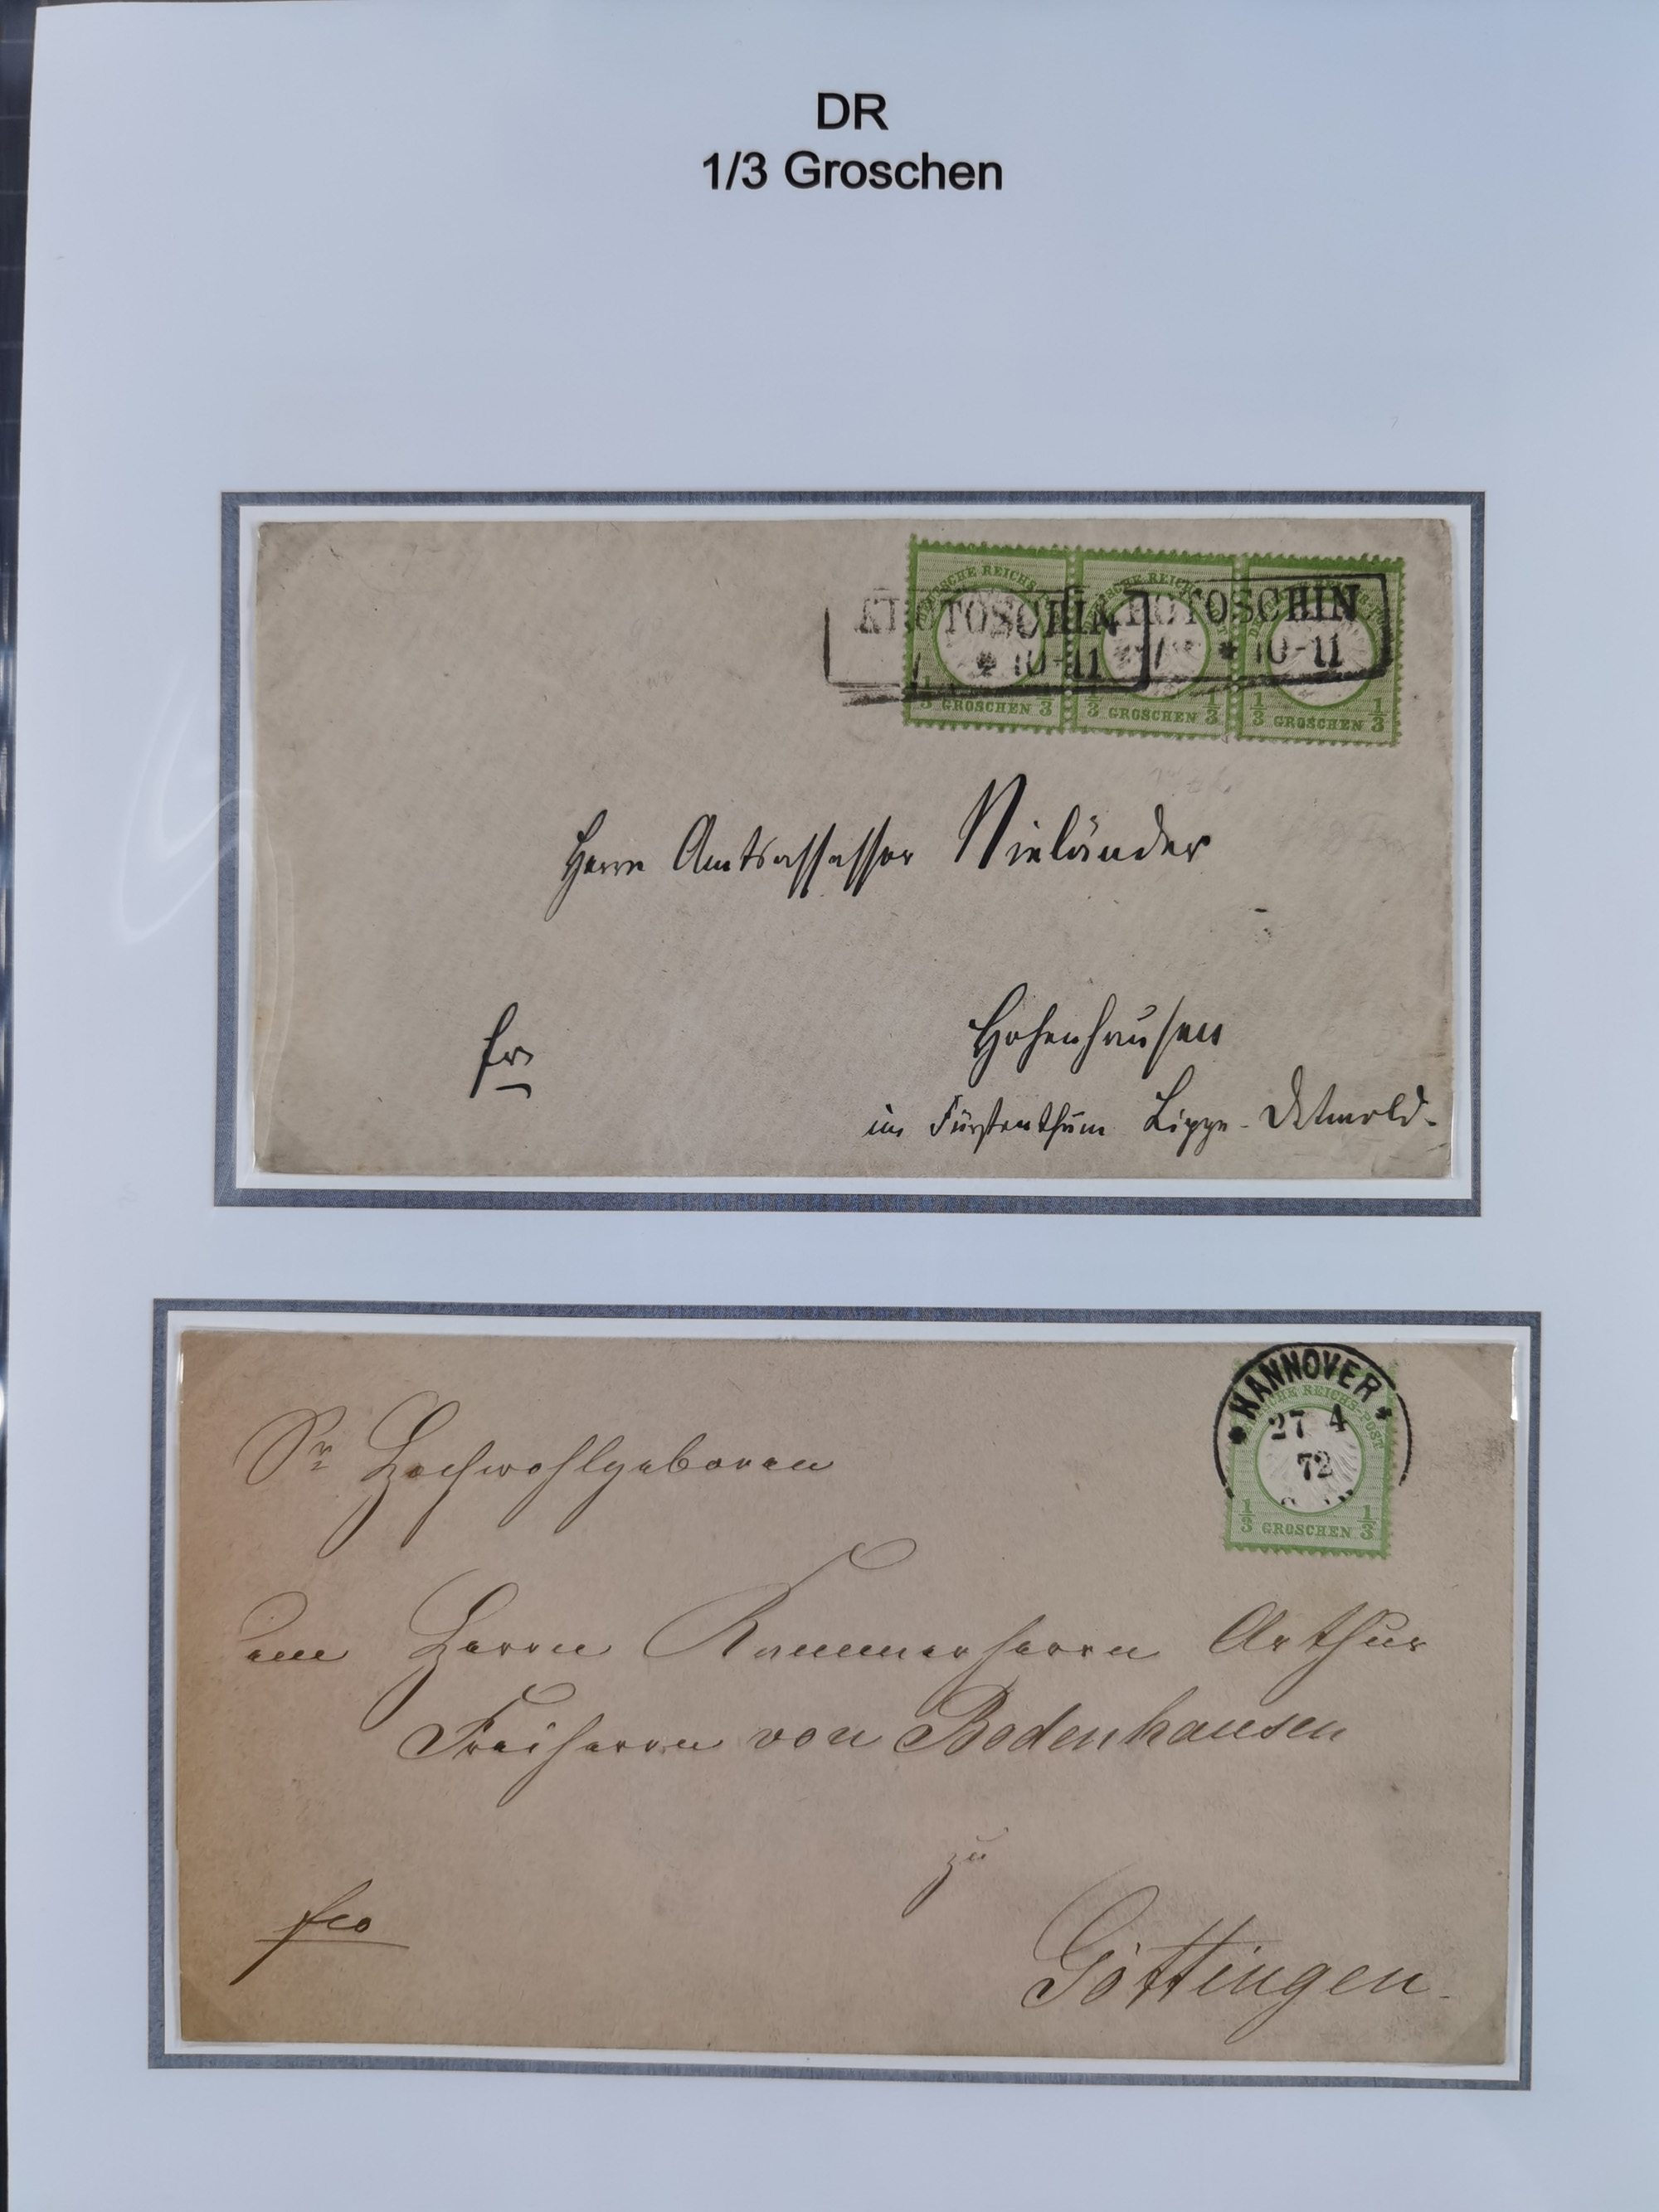 DR
1/3 Groschen
DEUTSCHE REICHS-POST
KROTOSCHIN KROTOSCHIN
* 10-11 * 10-11
1/3 GROSCHEN 1/3 1/3 GROSCHEN 1/3 1/3 GROSCHEN 1/3
Herrn Amtsassessor Nieländer
fr
Hohenhausen
im Fürstenthum Lippe-Detmold.
* HANNOVER *
REICHS-POST
27 4
72
1/3 GROSCHEN 1/3
Sr Hochwohlgeboren
dem Herrn Kammerherrn Arthur
Freiherrn von Bodenhausen
zu
fco
Göttingen.